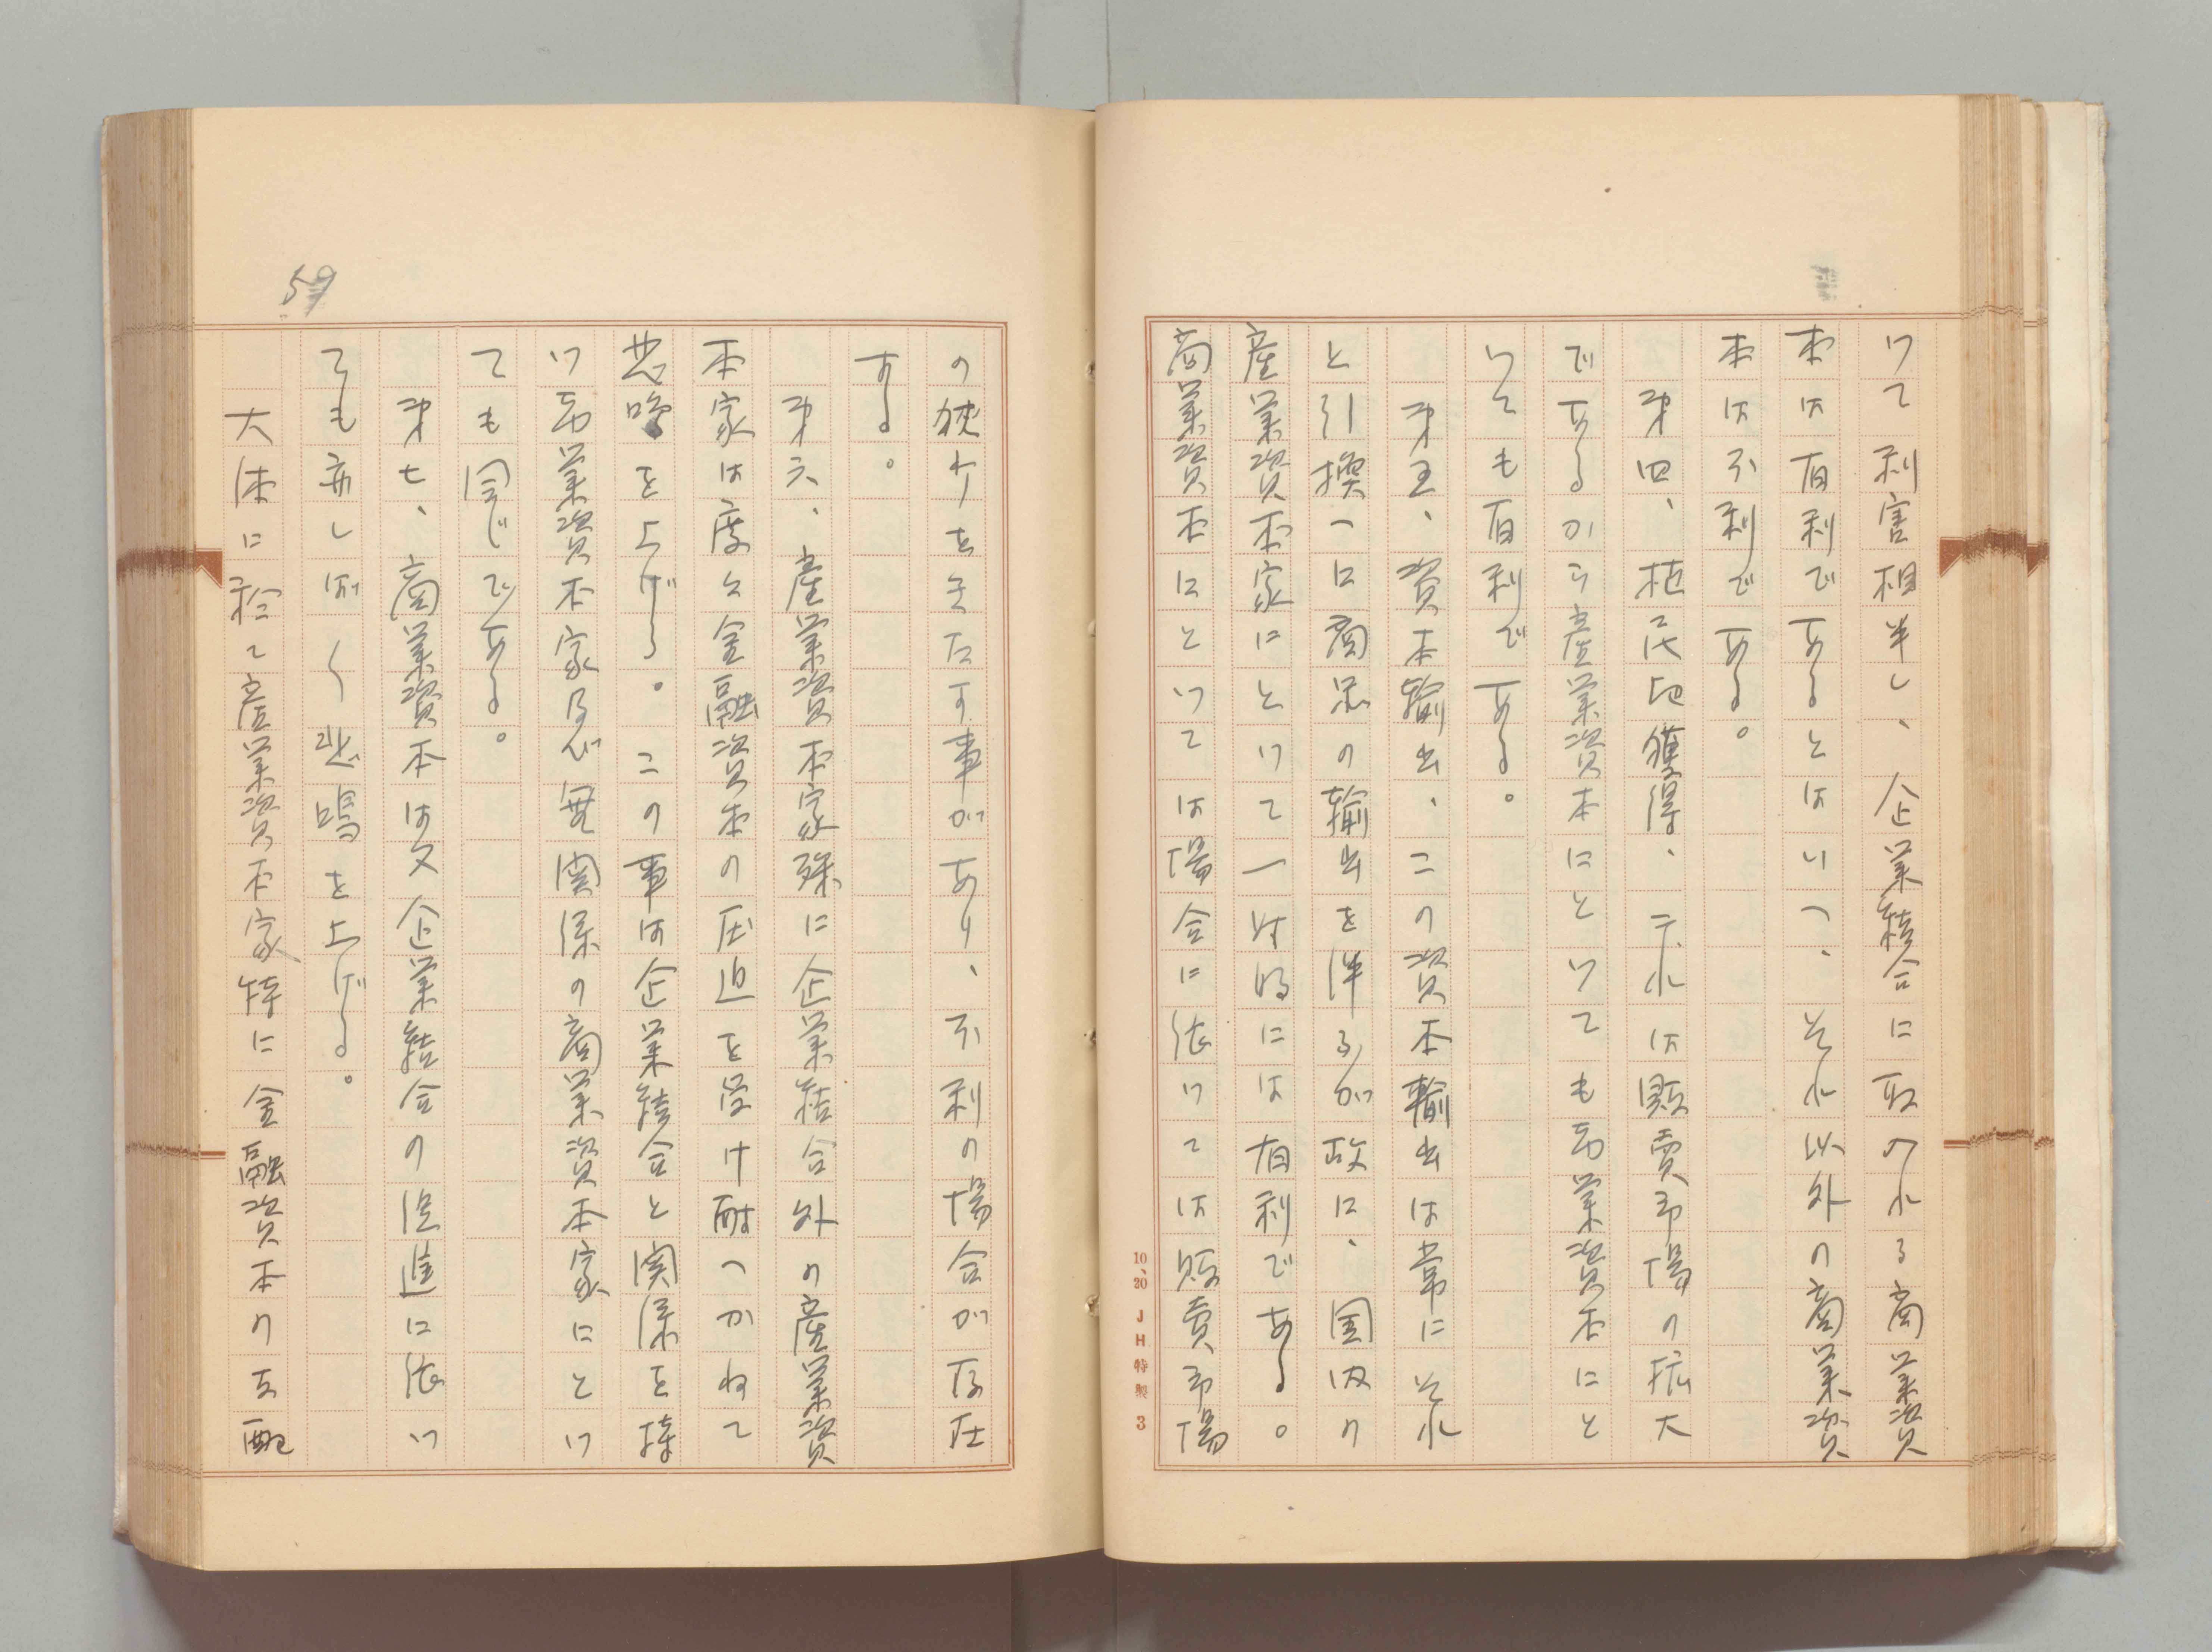 けて利害相半し、企業結合に取のれる商業資
本は有利であるとはいへ、それ以外の商業資
本は不利である。
第四、植民地獲得、これは販売市場の拡大
であるから産業資本にとっても商業資本にと
っても有利である。
第五、資本輸出、この資本輸出は常にそれ
と引換へに商品の輸出を伴ふが故に、国内の
産業資本家にとって一時的には有利である。
商業資本にとっては場合に依っては販売市場
10、20 JH特製 3
59
の狭少を来たす事があり、不利の場合が存在
する。
第六、産業資本家殊に企業結合外の産業資
本家は度々金融資本の圧迫を受け耐へかねて
悲鳴を上げる。この事は企業結合と関係を持
つ商業資本家及び無関係の商業資本家にとっ
ても同じである。
第七、商業資本は又企業結合の促進に依っ
ても亦しばしば悲鳴を上げる。
大体に於て産業資本家特に金融資本の支配